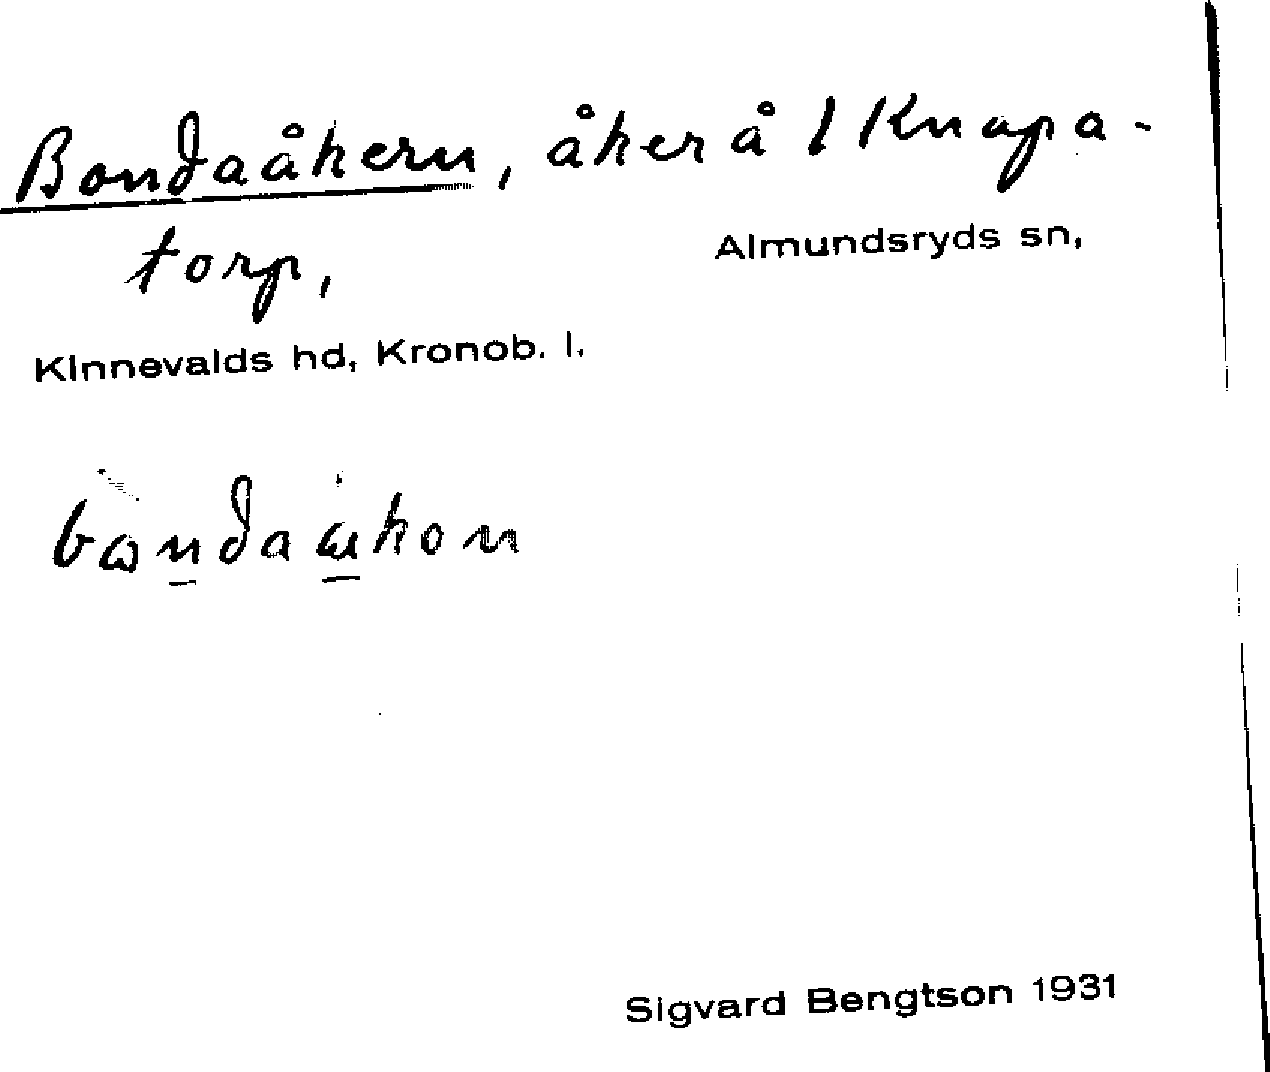 Bondaåkern, åker å 1 Knapa-
torp,
Almundsryds sn,
Kinnevalds hd, Kronob. l.
Sigvard Bengtson 1931